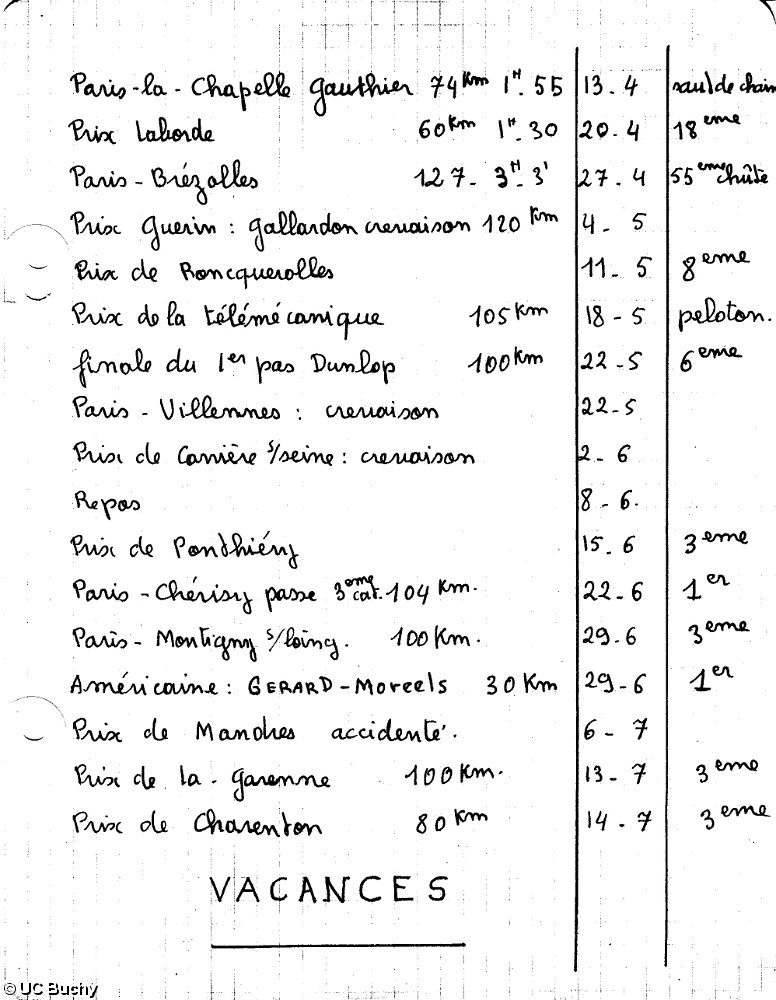 Paris-la-Chapelle Gauthier 74Km 1H.55 13.4 saut de chain
Prix Laborde 60Km 1H.30 20.4 18eme
Paris-Brézolles 127. 3H.3' 27.4 55eme chûte
Prix Guerin : gallardon crevaison 120 Km 4.5
Prix de Roncquerolles 11.5 8eme
Prix de la télémécanique 105Km 18-5 peloton.
finale du 1er pas Dunlop 100Km 22.5 6eme
Paris-Villennes : crevaison 22-5
Prix de Carrière s/seine : crevaison 2-6
Repos 8-6.
Prix de Ponthiéry 15.6 3eme
Paris-Chérisy passe 3eme cat. 104 Km. 22-6 1er
Paris-Montigny s/loing. 100Km. 29.6 3eme
Américaine : GERARD-Morcels 30Km 29-6 1er
Prix de Mandres accidenté. 6-7
Prix de la-garenne 100Km. 13-7 3eme
Prix de Charenton 80Km 14.7 3eme
VACANCES
© UC Buchy